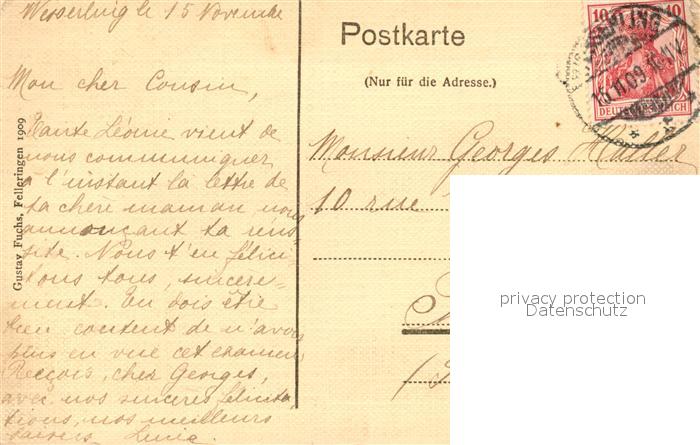 Wesserling le 15 Novembre
Mon cher Cousin,
Tante Léonie vient de
nous communiquer
à l'instant la lettre de
ta chère maman nous
annonçant ta reus-
site. Nous t'en félici-
tons tous, sincere-
ment. Tu dois être
bien content de n'avoir
plus en vue cet examen.
Reçois, cher Georges,
avec nos sincères félicita-
tions, nos meilleurs
baisers.
Gustav Fuchs, Felleringen 1909
Postkarte
(Nur für die Adresse.)
10 10
DEUTSCHES REICH
15.11.09
Monsieur Georges
10 rue
privacy protection
Datenschutz